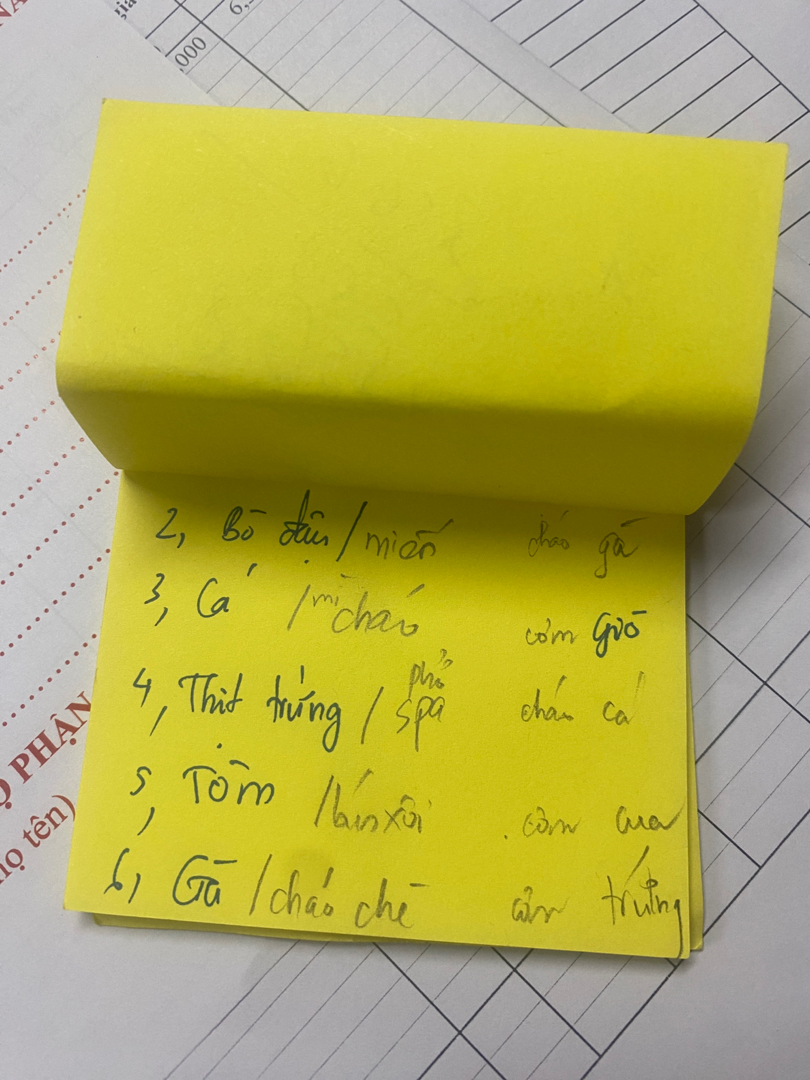 giá
000
6,
2, Bò đậu / miến cháo gà
3, Cá / mì cháo cơm Giò
4, Thịt trứng / phở spa cháo cá
5, Tôm / bún xôi cơm cua
6, Gà / cháo chè cơm trứng
Ộ PHẬN
họ tên)